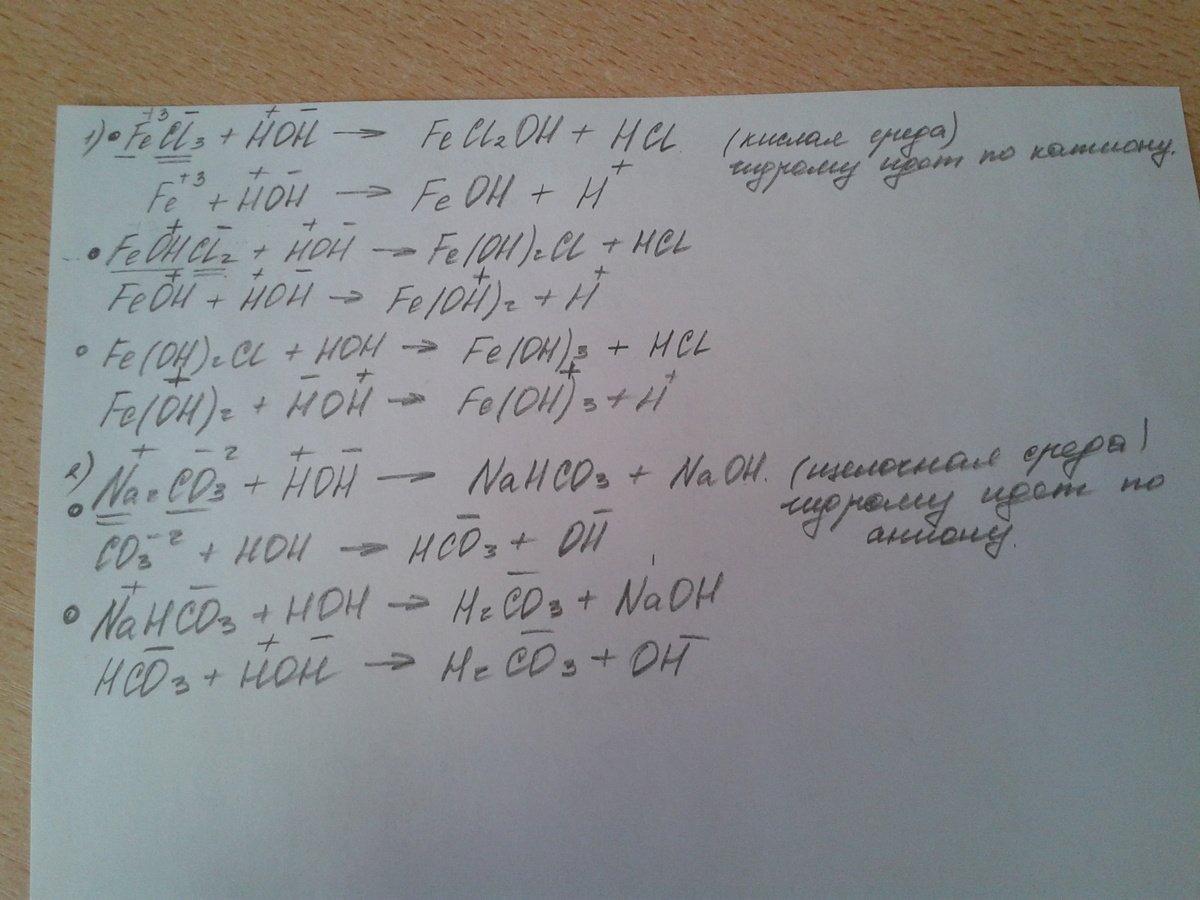 1) • Fe⁺³Cl⁻₃ + H⁺OH⁻ → FeCl₂OH + HCl (кислая среда)
гидролиз идет по катиону.
Fe⁺³ + H⁺OH⁻ → FeOH + H⁺
• FeOH⁺Cl⁻₂ + H⁺OH⁻ → Fe(OH)₂Cl + HCl
FeOH⁺ + H⁺OH⁻ → Fe(OH)₂⁺ + H⁺
• Fe(OH)₂Cl + HOH → Fe(OH)₃ + HCl
Fe(OH)₂⁺ + H⁻OH⁺ → Fe(OH)₃⁺ + H⁺
2) • Na⁺₂CO₃⁻² + H⁺OH⁻ → NaHCO₃ + NaOH. (щелочная среда)
гидролиз идет по
аниону.
CO₃⁻² + HOH → HCO₃⁻ + OH⁻
• Na⁺HCO₃⁻ + HOH → H₂CO₃⁻ + NaOH
HCO₃⁻ + H⁺OH⁻ → H₂CO₃⁻ + OH⁻